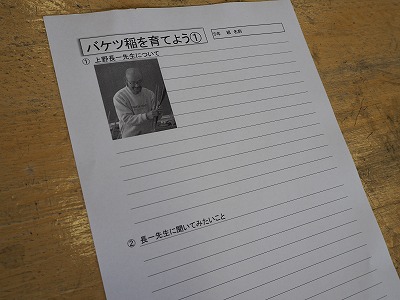 バケツ稲を育てよう①
5年 組 名前
① 上野長一先生について
② 長一先生に聞いてみたいこと